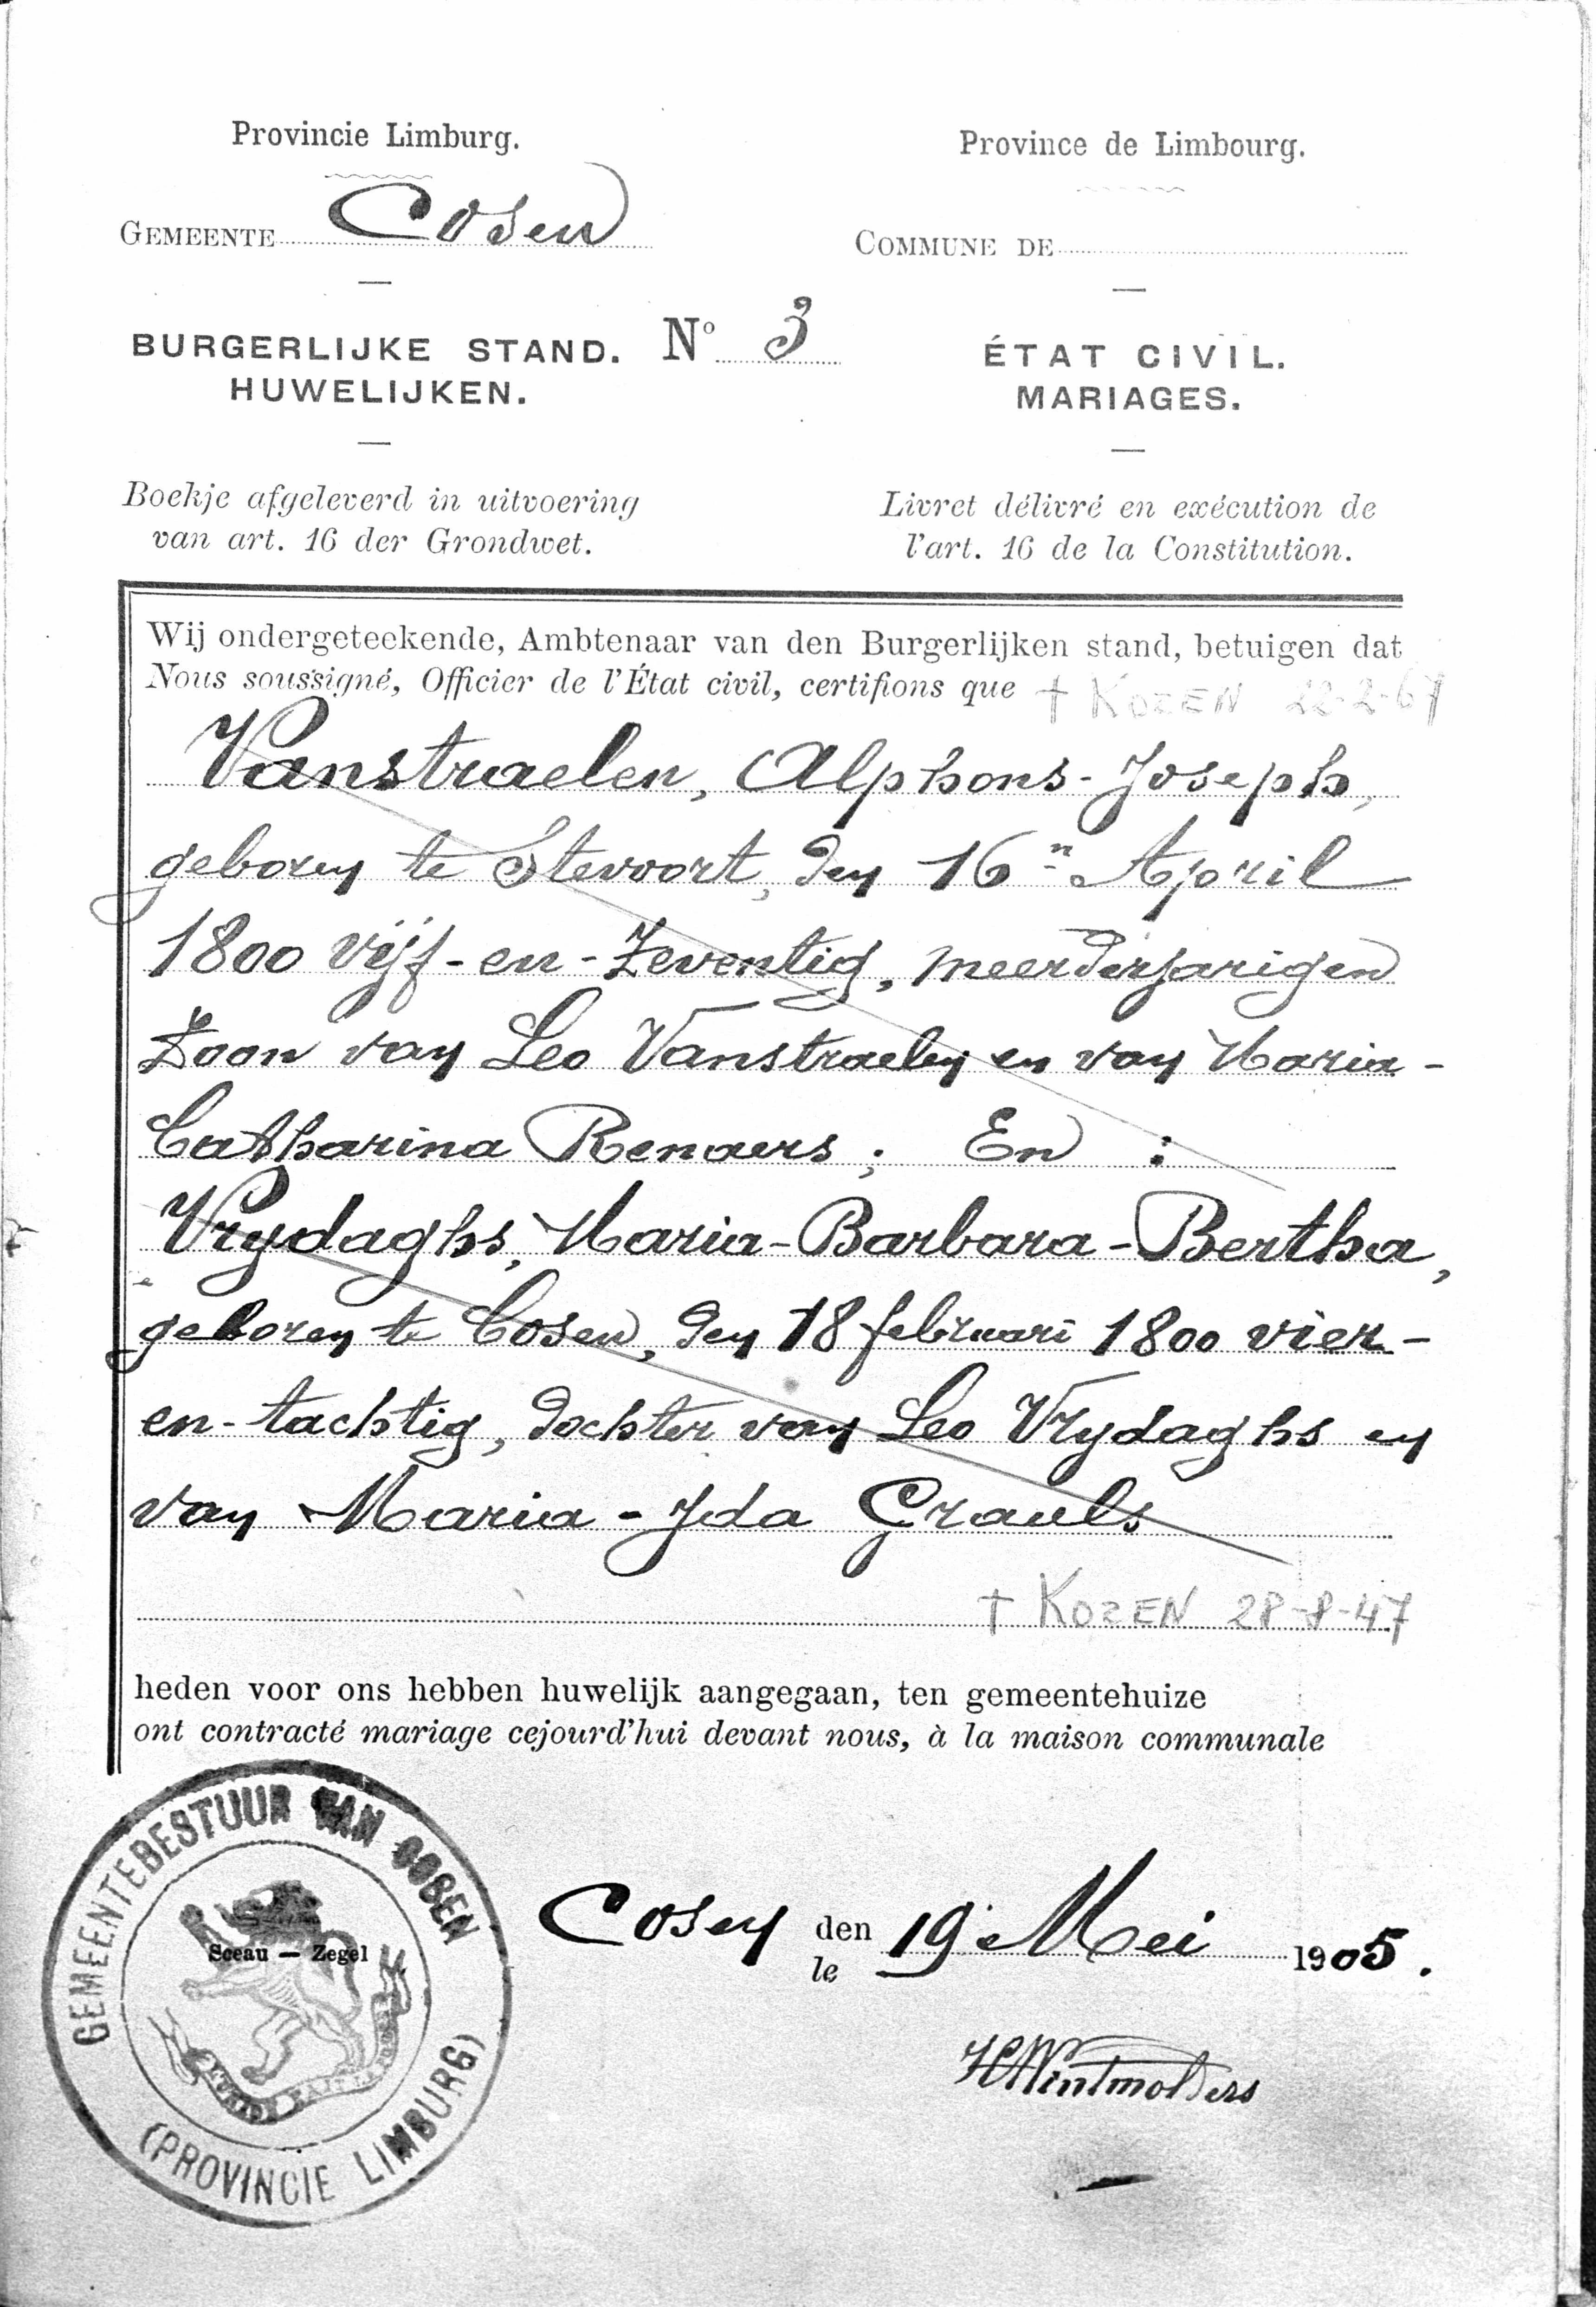 Provincie Limburg.
Province de Limbourg.
GEMEENTE Cosen
COMMUNE DE
BURGERLIJKE STAND. N° 3
HUWELIJKEN.
ÉTAT CIVIL.
MARIAGES.
Boekje afgeleverd in uitvoering
van art. 16 der Grondwet.
Livret délivré en exécution de
l'art. 16 de la Constitution.
Wij ondergeteekende, Ambtenaar van den Burgerlijken stand, betuigen dat
Nous soussigné, Officier de l'État civil, certifions que † KOZEN 22-2-67
Vanstraelen, Alphons-Joseph,
geboren te Stevoort, den 16n April
1800 vijf-en-Zeventig, meerderjarigen
Zoon van Leo Vanstraelen en van Maria-
Catharina Renaers; En :
Vrydaghs, Maria-Barbara-Bertha,
geboren te Cosen, den 18 februari 1800 vier-
en-tachtig, dochter van Leo Vrydaghs en
van Maria-Ida Grauls
† KOZEN 28-8-47
heden voor ons hebben huwelijk aangegaan, ten gemeentehuize
ont contracté mariage cejourd'hui devant nous, à la maison communale
GEMEENTEBESTUUR VAN COSEN
(PROVINCIE LIMBURG)
Sceau — Zegel
L'UNION FAIT LA FORCE
Cosen den 19 Mei 1905.
le
HWintmolders